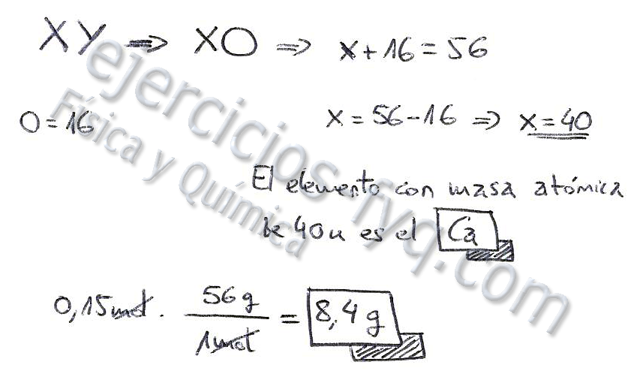 XY ⇒ XO ⇒ x+16=56
O=16
x=56-16 ⇒ x=40
El elemento con masa atómica
de 40u es el Ca
0,15 mol · 56g / 1 mol = 8,4 g
ejercicios-fyq.com
Física y Química